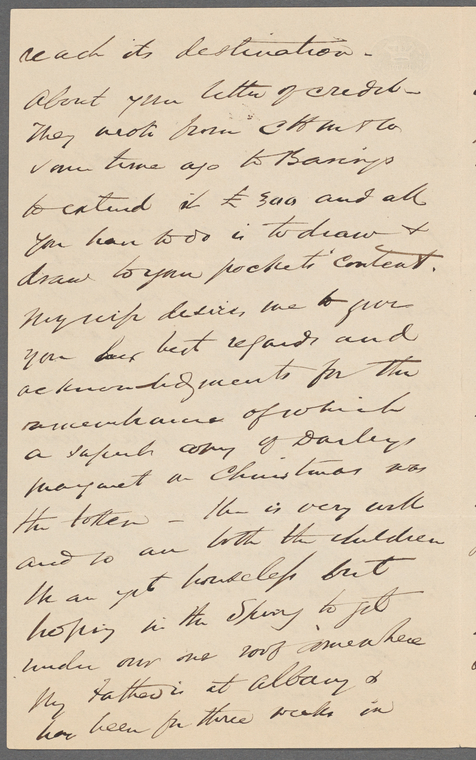 reach its destination -
About your letter of credit -
They wrote from C H M & Co
some time ago to Barings
to extend it £ 300 and all
you have to do is to draw &
draw to your pockets' content.
My wife desires me to give
you her best regards and
acknowledgments for the
remembrance of which
a superb copy of Darleys
Margaret on Christmas was
the token - She is very well
and so are both the children
We are yet houseless but
hoping in the Spring to get
under our own roof somewhere
My Father is at Albany &
has been for three weeks in